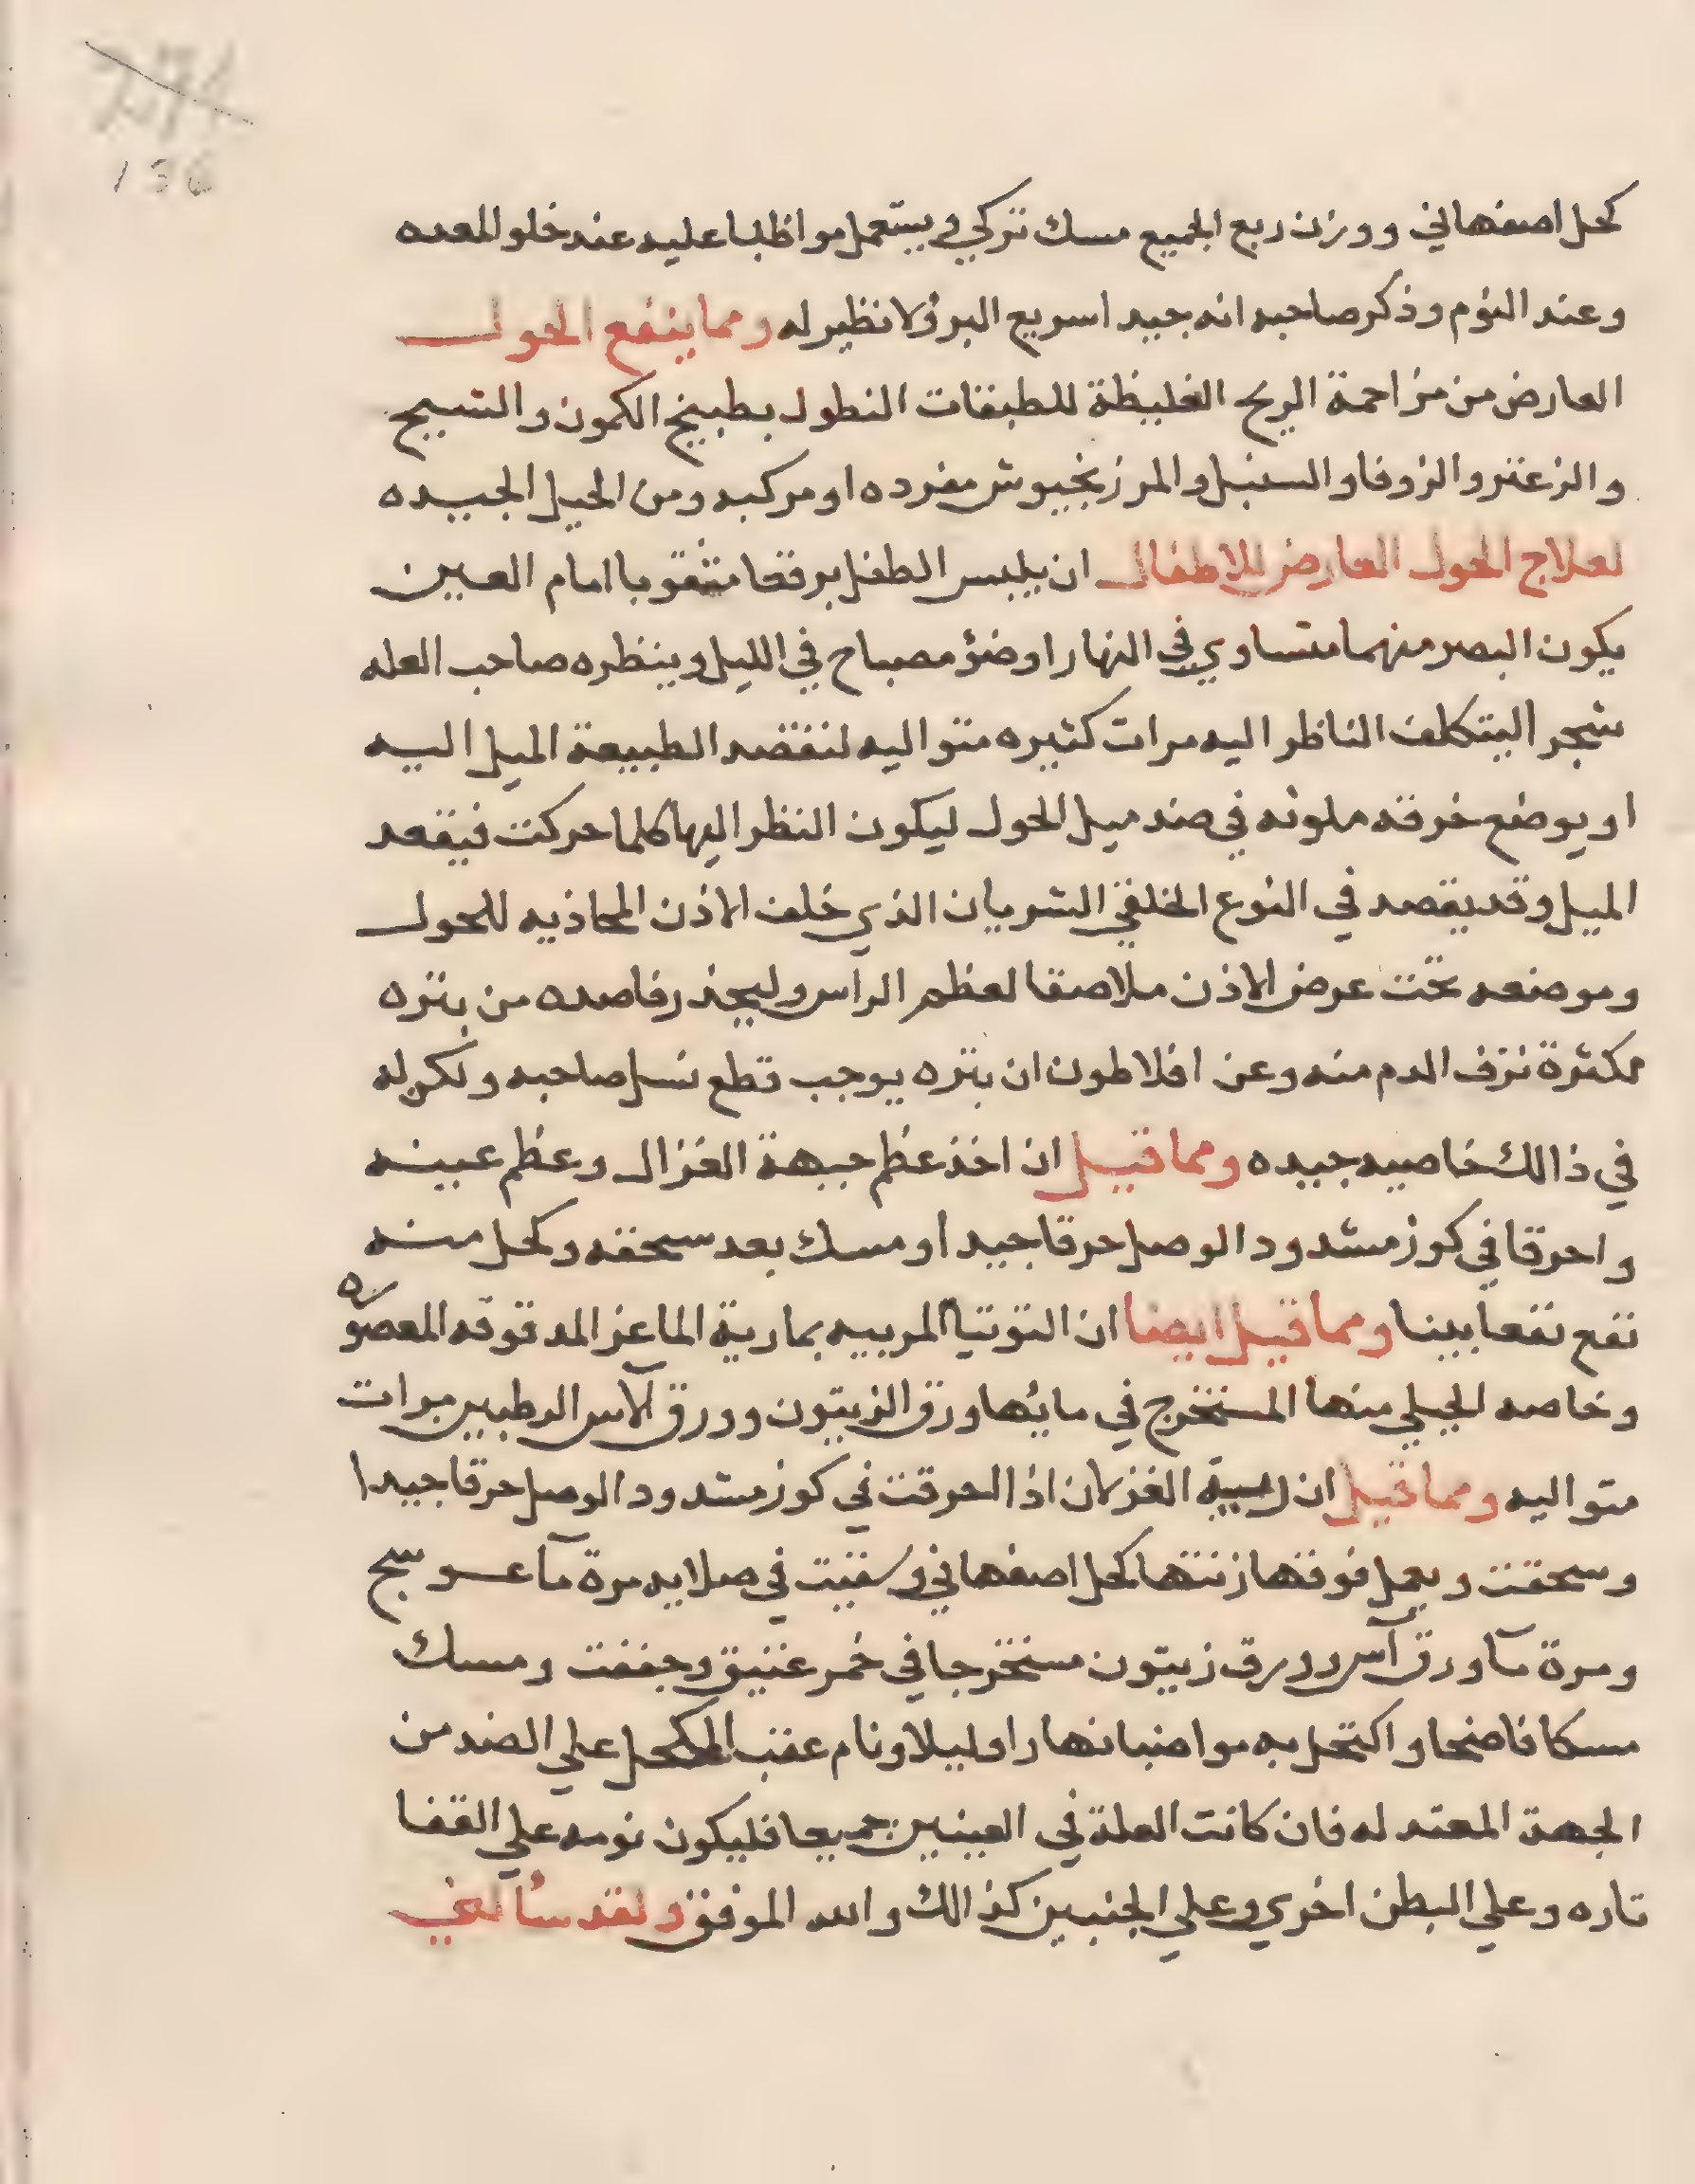 136
كحل اصفهاني ووزن ربع الجميع مسك تركي ويستعمل مواظبا عليه عند خلو المعده
وعند النوم وذكر صاحبه انه جيد اسريع البرؤ لا نظير له ومما ينفع الحول
العارض من مزاحمة الريح الغليظة للطبقات النطول بطبيخ الكمون والشيح
والزعتر والزوفا والسنبل والمرزنجيوش مفرده او مركبه ومن الحيل الجيده
لعلاج الحول العارض للاطفال ان يلبس الطفل برقعا مثقوبا امام العين
يكون البصر منهما متساوي في النهار او ضؤ مصباح في الليل وينظره صاحب العله
شجر اليتكلف الناظر اليه مرات كثيره متواليه الطبيعة الميل اليه
او يوضع خرقه ملونه في ضد ميل الحول ليكون النظر اليها كلما حركت فيقعد
الميل وقد يقصد في النوع الخلقي الشريان الذي خلف الاذن المحاذيه للحول
وموضعه تحت عرض الاذن ملاصقا لعظم الراس وليحذر فاصده من بتره
لكثرة نزف الدم منه وعن افلاطون ان بتره يوجب قطع نسل صاحبه وله
في ذالك خاصيه جيده ومما قيل ان اخذ عظم جبهة الغزال وعظم عينه
واحرقا في كوز مشدود الوصل حرقا جيدا ومسك بعد سحقه وكحل منه
نفع نفعا بينا ومما قيل ايضا ان التوتيا المربيه بمارية الماعز المدقوقه المعصوره
وخاصه الجبلي منها المستخرج في مائها ورق الزيتون وورق الآس الرطبين مرات
متواليه ومما قيل ان الغزلان اذا احرقت في كوز مشدود الوصل حرقا جيدا
وسحقت ويعمل فوقها زنتها كحل اصفهاني وسقيت في صلايه مرة مآ عوسج
ومرة مآ ورق آس وورق زيتون مستخرجا في خمر عتيق وجففت ومسك
مسكا فاضحا واكتحل به مواضبا نهارا وليلا ونام عقب المكحل علي الضد من
الجهة المعتد له فان كانت العلة في العينين جميعا فليكون نومه علي القفا
تاره وعلي البطن اخري وعلي الجنبين كذالك والله الموفق ولقد سألني